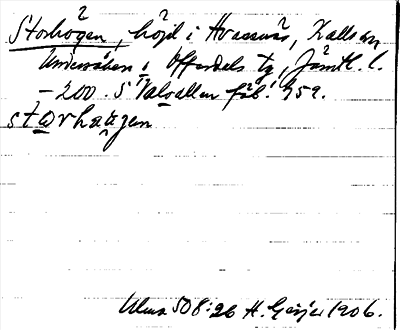 Storhögen, höjd i Hvassnäs, Kalls sn
Undersåkers i Offerdals tg, Jämtl. l.
- 200. S Valvallen fäb. 959.
storhægen
Ulma 508:26 H. Geijer 1906.